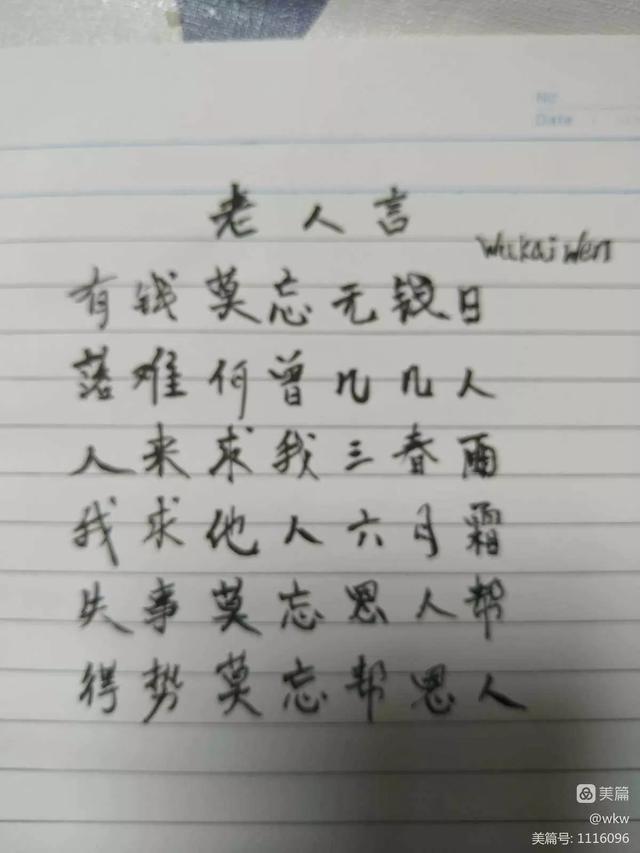 No
Date
老人言
Wukaiwen
有钱莫忘无钱日
落难何曾几几人
人来求我三春雨
我求他人六月霜
失事莫忘恩人帮
得势莫忘帮恩人
美篇
@wkw
美篇号: 1116096